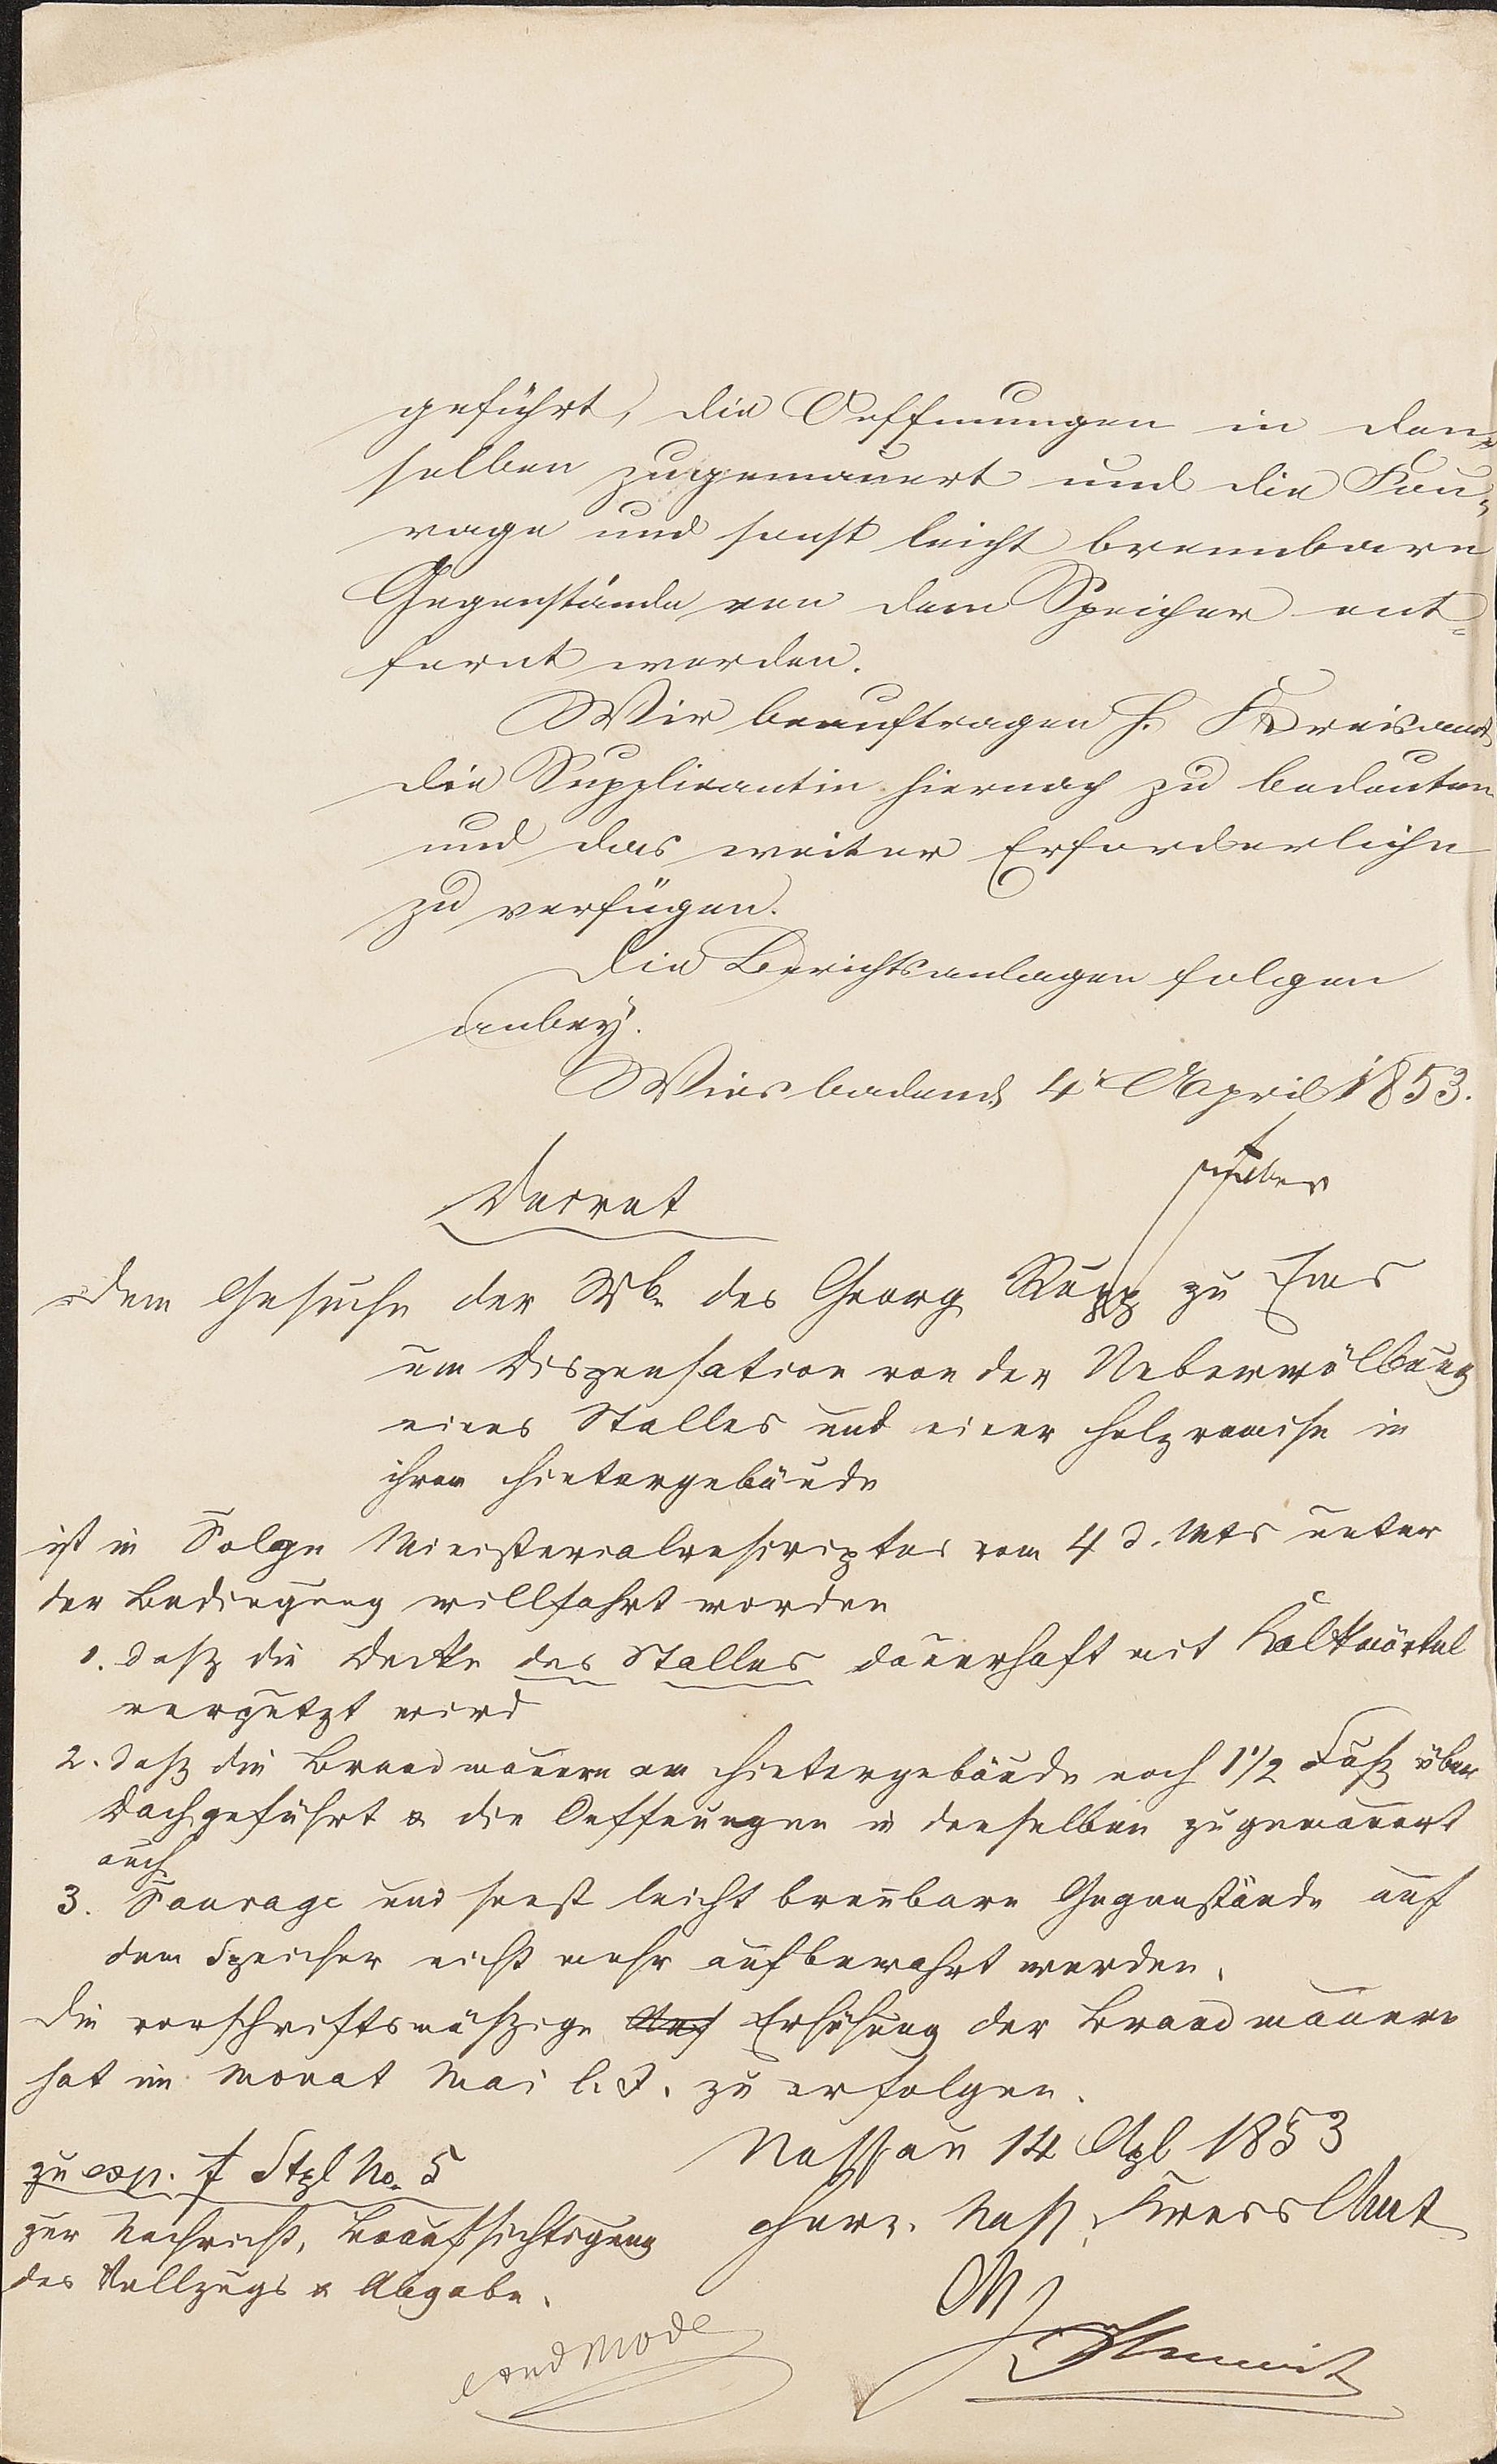 geführt, die Oeffnungen in den¬
selben zugemauert und die Fou¬
rage und sonst leicht brennbare
Gegenstände von dem Speicher ent¬
fernt werden.
Wir beauftragen H. Kreisamt
die Supplicantin hiernach zu bedeuten
und das weiter Erforderliche
zu verfügen.
Die Berichtsanlagen folgen
anbey.
Wiesbaden d. 4 April 1853.
Decret
Dem Gesuche der Wb. des Georg Rupp zu Ems
um Dispensation von der Ueberwölbung
eines Stalles und einer Holzremise in
ihrem Hintergebäude
ist in Folge Ministerialrescriptes vom 4 d. Mts unter
der Bedingung willfahrt worden
1. daß die Decke des Stalles dauerhaft mit Kalkmörtel
verputzt wird
2. daß die Brandmauern am Hintergebäude noch 1 1/2 Fuß über
Dach geführt & die Oeffnungen in denselben zugemauert
auch
3. Fourage und sonst leicht brennbare Gegenstände auf
dem Speicher nicht mehr aufbewahrt werden.
Die vorschriftsmäßige Erhöhung der Brandmauern
hat im Monat Mai l. J. zu erfolgen.
Nassau 14 Apl 1853
Herz. Nass. Kreis Amt
zu exp. f Stpl No. 5
zur Nachricht, Beaufsichtigung
des Vollzugs & Abgabe.